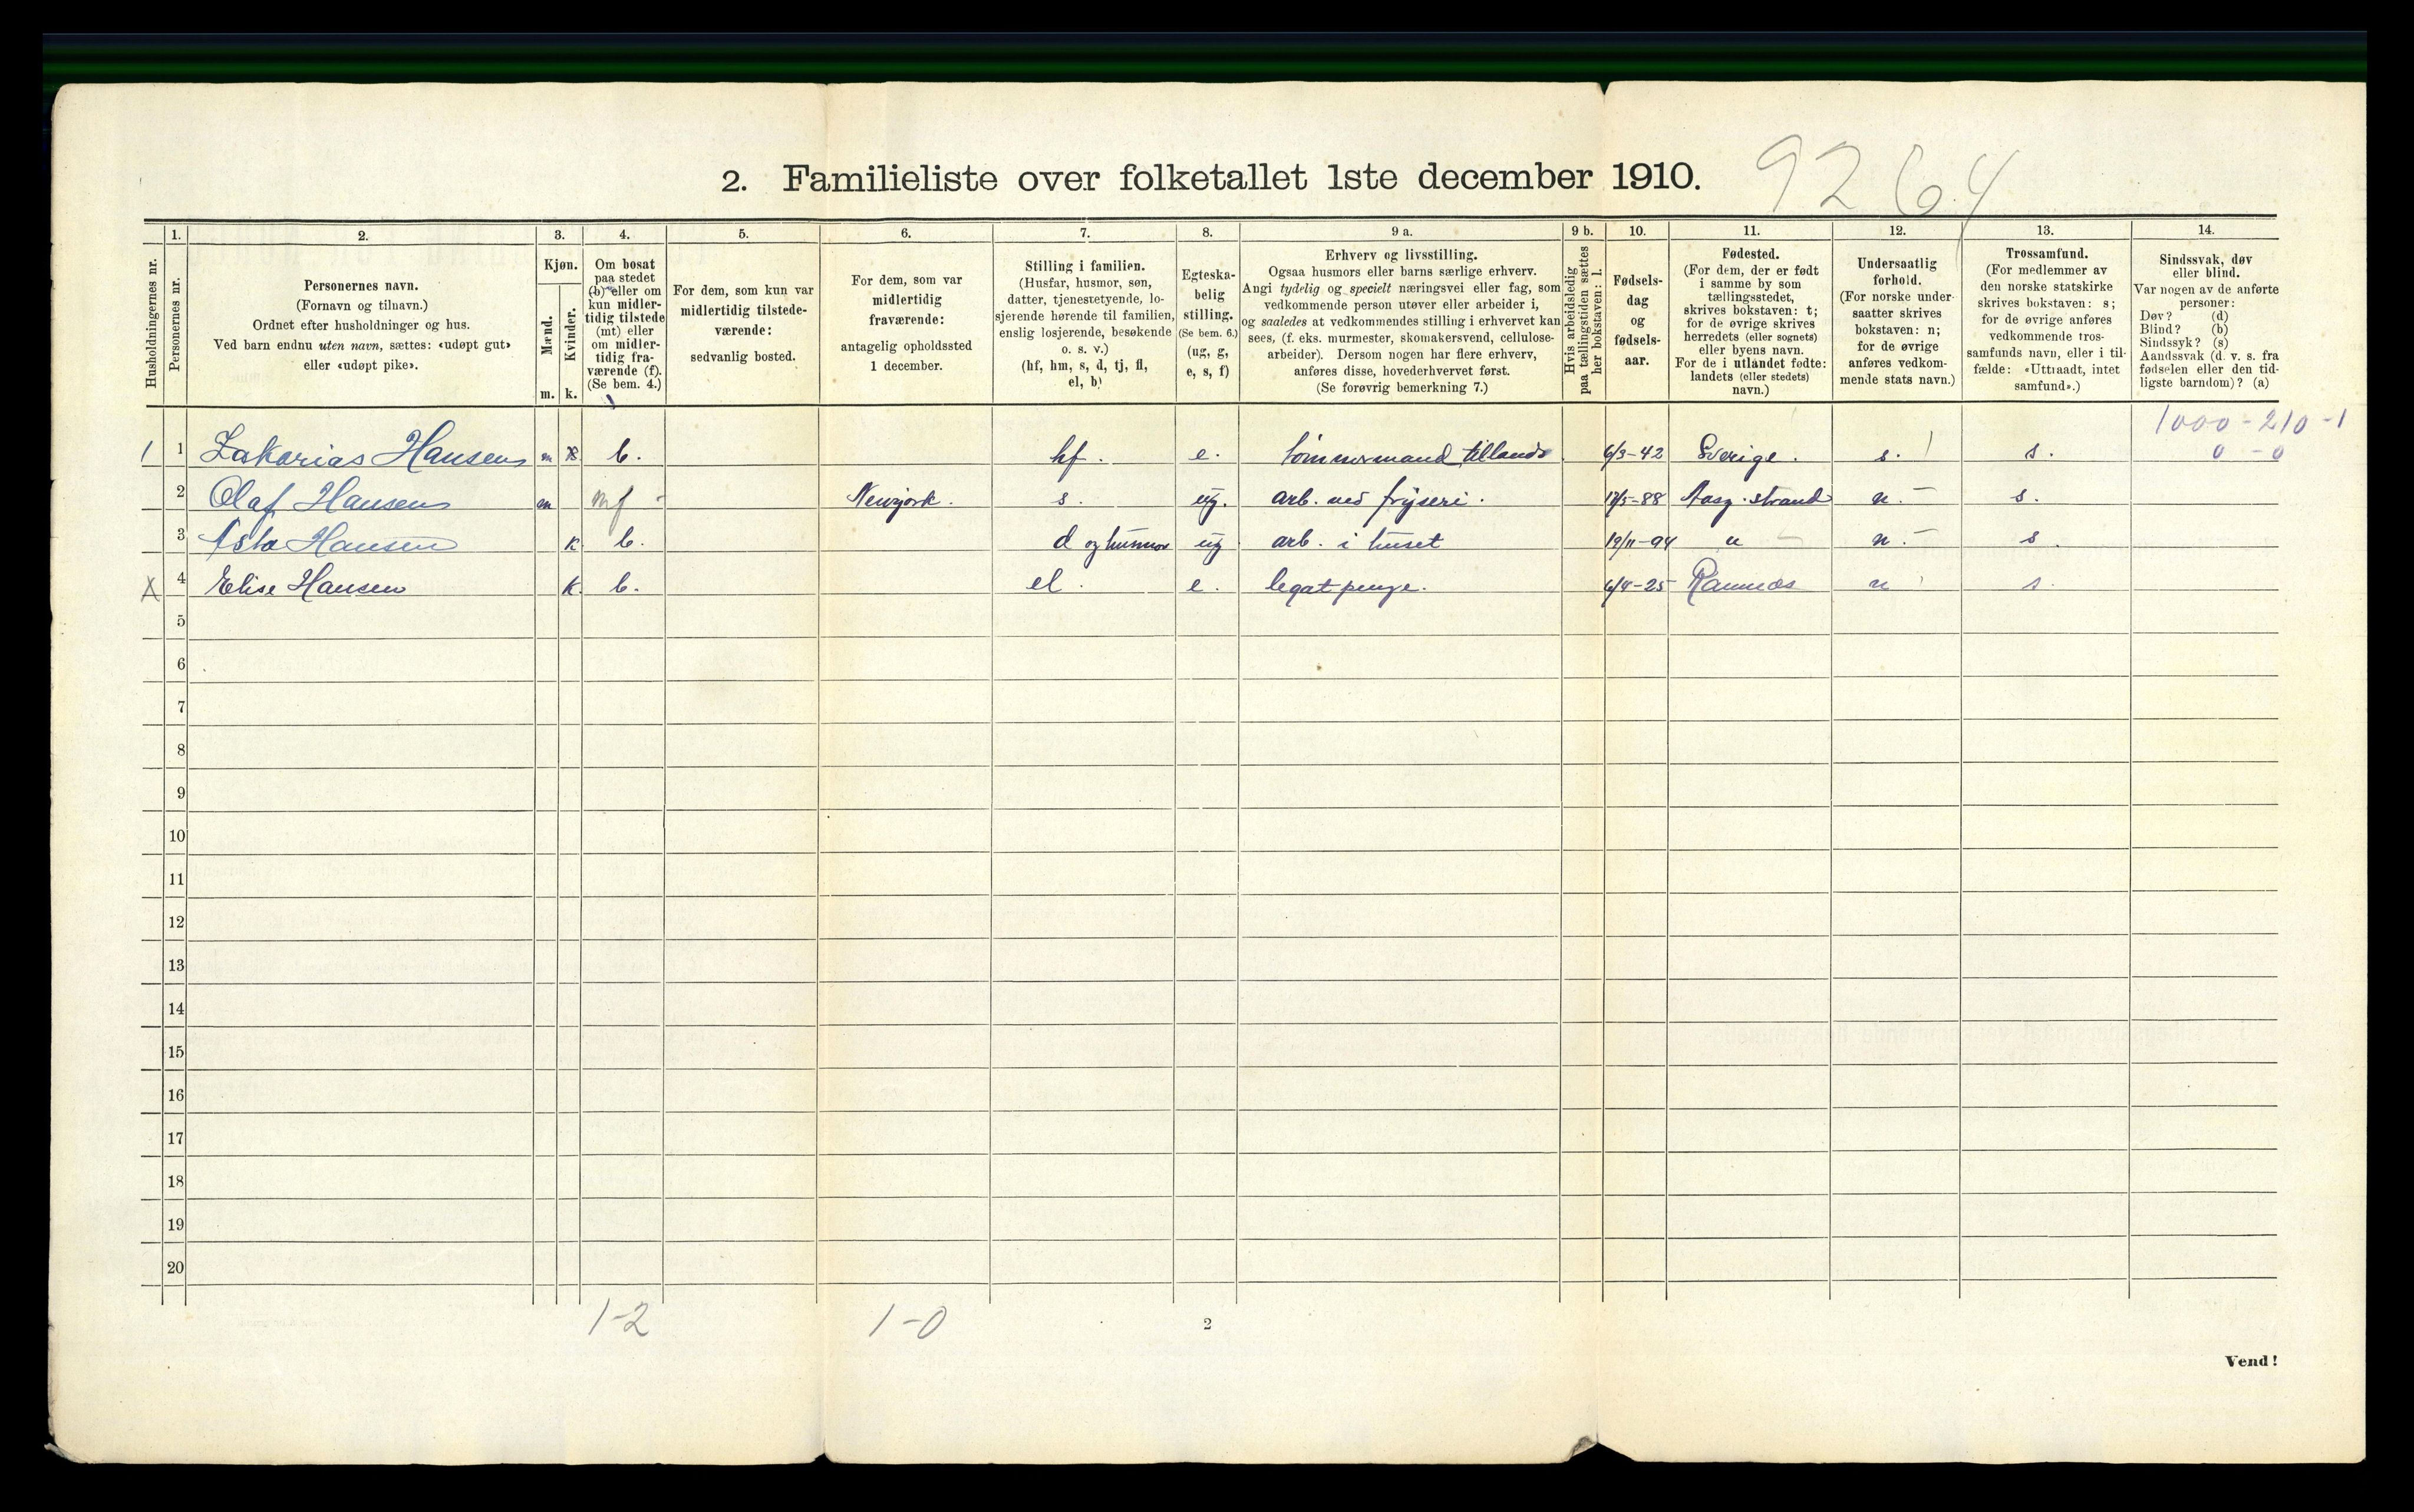 2. Familieliste over folketallet 1ste december 1910.
9264
Husholdningernes nr.
1.
Personernes nr.
2.
Personernes navn.
(Fornavn og tilnavn.)
Ordnet efter husholdninger og hus.
Ved barn endnu uten navn, sættes: «udøpt gut»
eller «udøpt pike».
3.
Kjøn.
Mænd.
m.
Kvinder.
k.
4.
Om bosat
paa stedet
(b) eller om
kun midler-
tidig tilstede
(mt) eller
om midler-
tidig fra-
værende (f).
(Se bem. 4.)
5.
For dem, som kun var
midlertidig tilstede-
værende:
sedvanlig bosted.
6.
For dem, som var
midlertidig
fraværende:
antagelig opholdssted
1 december.
7.
Stilling i familien.
(Husfar, husmor, søn,
datter, tjenestetyende, lo-
sjerende hørende til familien,
enslig losjerende, besøkende
o. s. v.)
(hf, hm, s, d, tj, fl,
el, b)
8.
Egteska-
belig
stilling.
(Se bem. 6.)
(ug, g,
e, s, f)
9 a.
Erhverv og livsstilling.
Ogsaa husmors eller barns særlige erhverv.
Angi tydelig og specielt næringsvei eller fag, som
vedkommende person utøver eller arbeider i,
og saaledes at vedkommendes stilling i erhvervet kan
sees, (f. eks. murmester, skomakersvend, cellulose-
arbeider). Dersom nogen har flere erhverv,
anføres disse, hovederhvervet først.
(Se forøvrig bemerkning 7.)
9 b.
Hvis arbeidsledig
paa tællingstiden sættes
her bokstaven: l.
10.
Fødsels-
dag
og
fødsels-
aar.
11.
Fødested.
(For dem, der er født
i samme by som
tællingsstedet,
skrives bokstaven: t;
for de øvrige skrives
herredets (eller sognets)
eller byens navn.
For de i utlandet fødte:
landets (eller stedets)
navn.)
12.
Undersaatlig
forhold.
(For norske under-
saatter skrives
bokstaven: n;
for de øvrige
anføres vedkom-
mende stats navn.)
13.
Trossamfund.
(For medlemmer av
den norske statskirke
skrives bokstaven: s;
for de øvrige anføres
vedkommende tros-
samfunds navn, eller i til-
fælde: «Uttraadt, intet
samfund».)
14.
Sindssvak, døv
eller blind.
Var nogen av de anførte
personer:
Døv? (d)
Blind? (b)
Sindssyk? (s)
Aandssvak (d. v. s. fra
fødselen eller den tid-
ligste barndom)? (a)
1000-210-1
0-0
1 1 Zakarias Hansen m b. hf. e. tømmermand tillands 6/3-42 Sverige. s. s.
2 Olaf Hansen m mf Newyork. s. ug. arb. ved fryseri. 17/5-88 Aasg.strand n. s.
3 Asta Hansen k. b. d og husmor ug arb. i huset 19/11-94 n. s.
X 4 Elise Hansen k. b. el. e. legatpenge. 6/4-25 Ramnæs n s.
5
6
7
8
9
10
11
12
13
14
15
16
17
18
19
20
1-2 1-0
2
Vend!